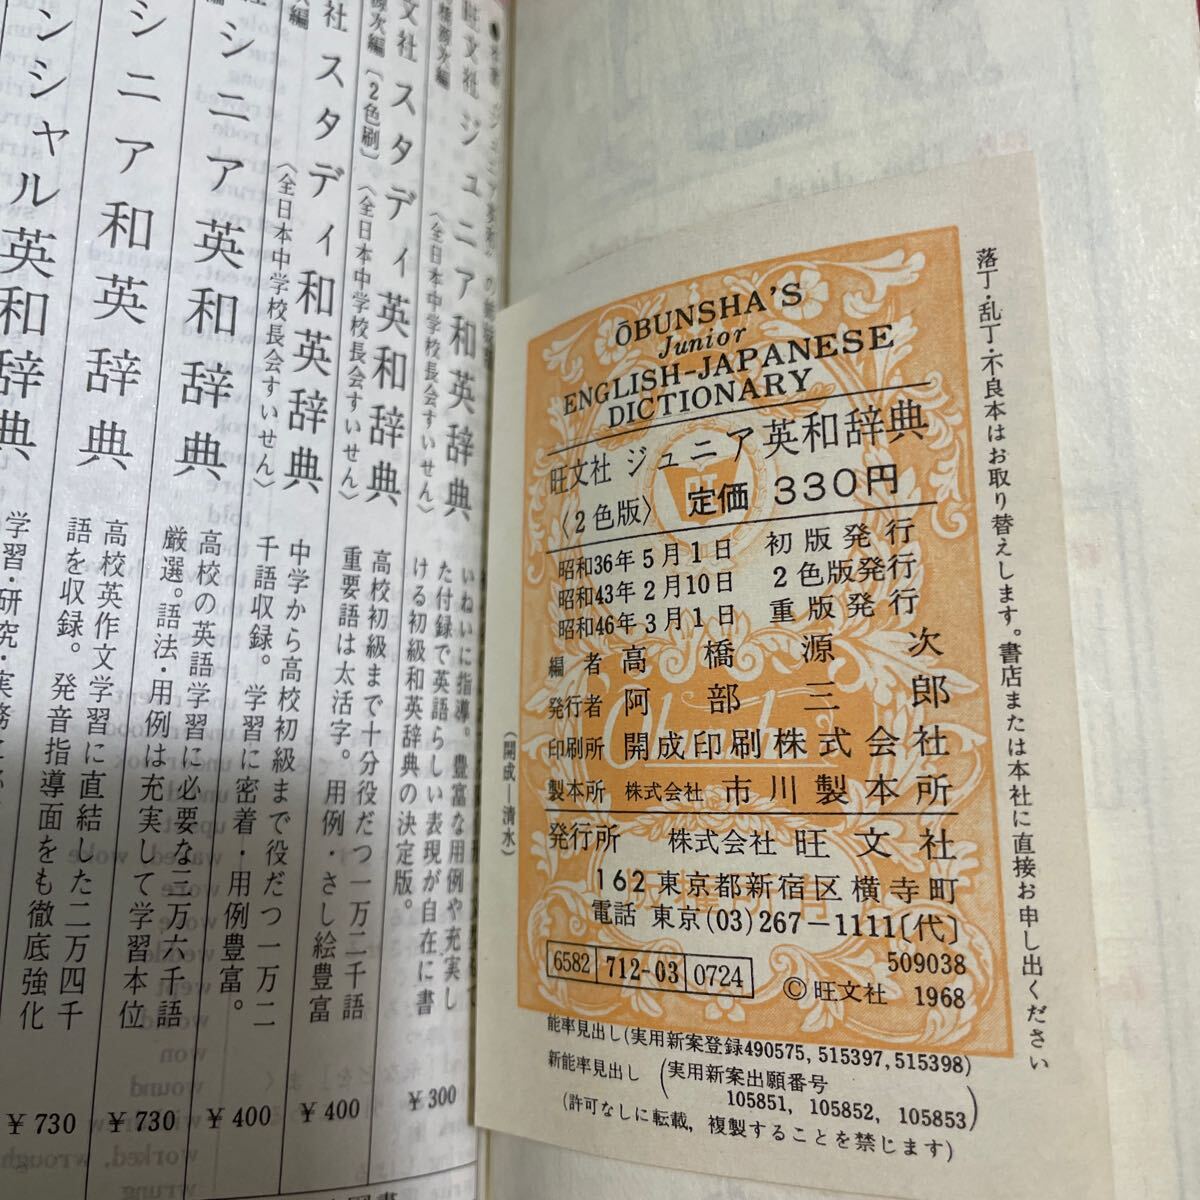 ŌBUNSHA'S
Junior
ENGLISH-JAPANESE
DICTIONARY
旺文社 ジュニア英和辞典
〈2色版〉 定価 330円
昭和36年5月1日 初版発行
昭和43年2月10日 2色版発行
昭和46年3月1日 重版発行
編者 高橋源次
発行者 阿部三郎
印刷所 開成印刷株式会社
製本所 株式会社 市川製本所
発行所 株式会社 旺文社
162 東京都新宿区横寺町
電話 東京(03)267-1111〔代〕
509038
6582 712-03 0724
©旺文社 1968
能率見出し(実用新案登録490575, 515397, 515398)
新能率見出し (実用新案出願番号
105851, 105852, 105853)
(許可なしに転載, 複製することを禁じます)
落丁・乱丁・不良本はお取り替えします。書店または本社に直接お申し出ください
(開成―清水)
旺文社 ジュニア和英辞典
〈全日本中学校長会すいせん〉
た付録で英語らしい表現が自在に書
ける初級和英辞典の決定版。
¥300
文社 スタディ英和辞典
源次編〔2色刷〕〈全日本中学校長会すいせん〉
高校初級まで十分役だつ一万二千語
重要語は太活字。用例・さし絵豊富
¥400
社 スタディ和英辞典
編 〈全日本中学校長会すいせん〉
中学から高校初級まで役だつ一万二
千語収録。学習に密着・用例豊富。
¥400
シニア英和辞典
高校の英語学習に必要な三万六千語
厳選。語法・用例は充実して学習本位
¥730
シニア和英辞典
高校英作文学習に直結した二万四千
語を収録。発音指導面をも徹底強化
¥730
ンシャル英和辞典
学習・研究・実務